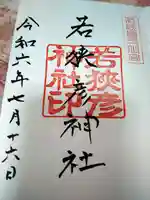 若狹彦神社
若狹彦
神社印
令和六年七月十六日